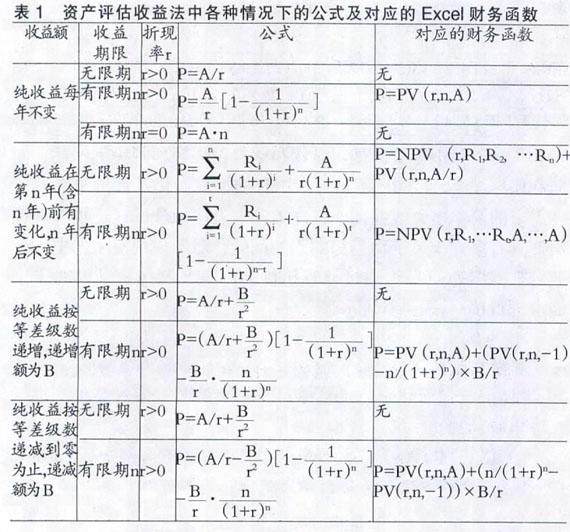 表1 资产评估收益法中各种情况下的公式及对应的Excel财务函数
收益额 收益期限 折现率r 公式 对应的财务函数
纯收益每年不变
无限期 r>0 P=A/r 无
有限期n r>0 P=A/r[1-1/(1+r)^n] P=PV(r,n,A)
有限期n r=0 P=A·n 无
纯收益在第n年(含n年)前有变化,n年后不变
无限期 r>0 P=∑_{i=1}^{n} R_i/(1+r)^i + A/r(1+r)^n P=NPV (r,R₁,R₂, …Rₙ)+PV(r,n,A/r)
有限期n r>0 P=∑_{i=1}^{t} R_i/(1+r)^i + A/r(1+r)^t [1-1/(1+r)^{n-t}] P=NPV(r,R₁,…RₜA,…,A)
纯收益按等差级数递增,递增额为B
无限期 r>0 P=A/r+B/r² 无
有限期n r>0 P=(A/r+B/r²)[1-1/(1+r)^n]-B/r·n/(1+r)^n P=PV(r,n,A)+(PV(r,n,-1)-n/(1+r)ⁿ)×B/r
纯收益按等差级数递减到零为止,递减额为B
无限期 r>0 P=A/r+B/r² 无
有限期n r>0 P=(A/r-B/r²)[1-1/(1+r)^n]-B/r·n/(1+r)^n P=PV(r,n,A)+(n/(1+r)ⁿ-PV(r,n,-1))×B/r